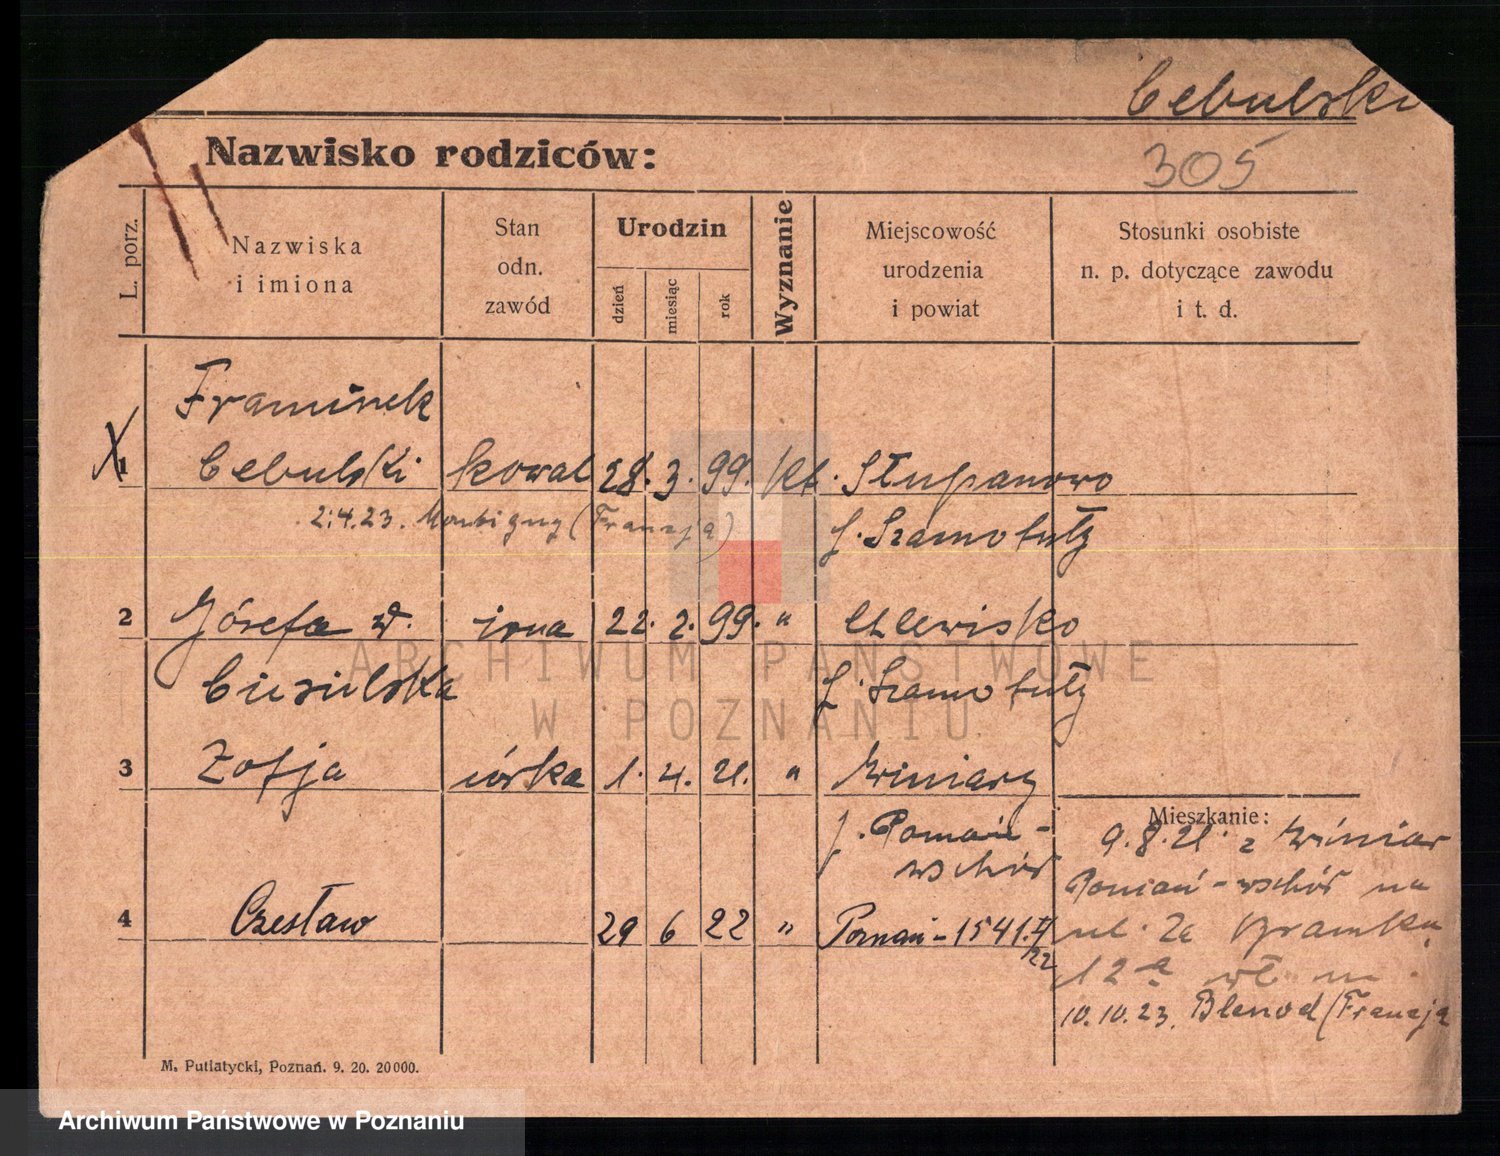 Cebulski
305
Nazwisko rodziców:
L. porz.
Nazwiska
i imiona
Stan
odn.
zawód
Urodzin
dzień
miesiąc
rok
Wyznanie
Miejscowość
urodzenia
i powiat
Stosunki osobiste
n. p. dotyczące zawodu
i t. d.
Franciszek
X1 Cebulski kowal 28. 3. 99. kt. Słupanowo
2.4.23. Montigny (Francja) p. Szamotuły
2 Józefa z d. żona 22. 2. 99. "
Ciesielska p. Szamotuły
3 Zofja córka 1. 4. 21. " Winiary
Mieszkanie:
p. Poznań-
wschód
9.8.21. z Winiar
Poznań-wschód na
4 Czesław 29 6 22 " Poznań-1541.II/22
ul. Za Bramką
12a
10.10.23. Blenod (Francja)
M. Putiatycki, Poznań. 9. 20. 20000.
ARCHIWUM PAŃSTWOWE
W POZNANIU
Archiwum Państwowe w Poznaniu